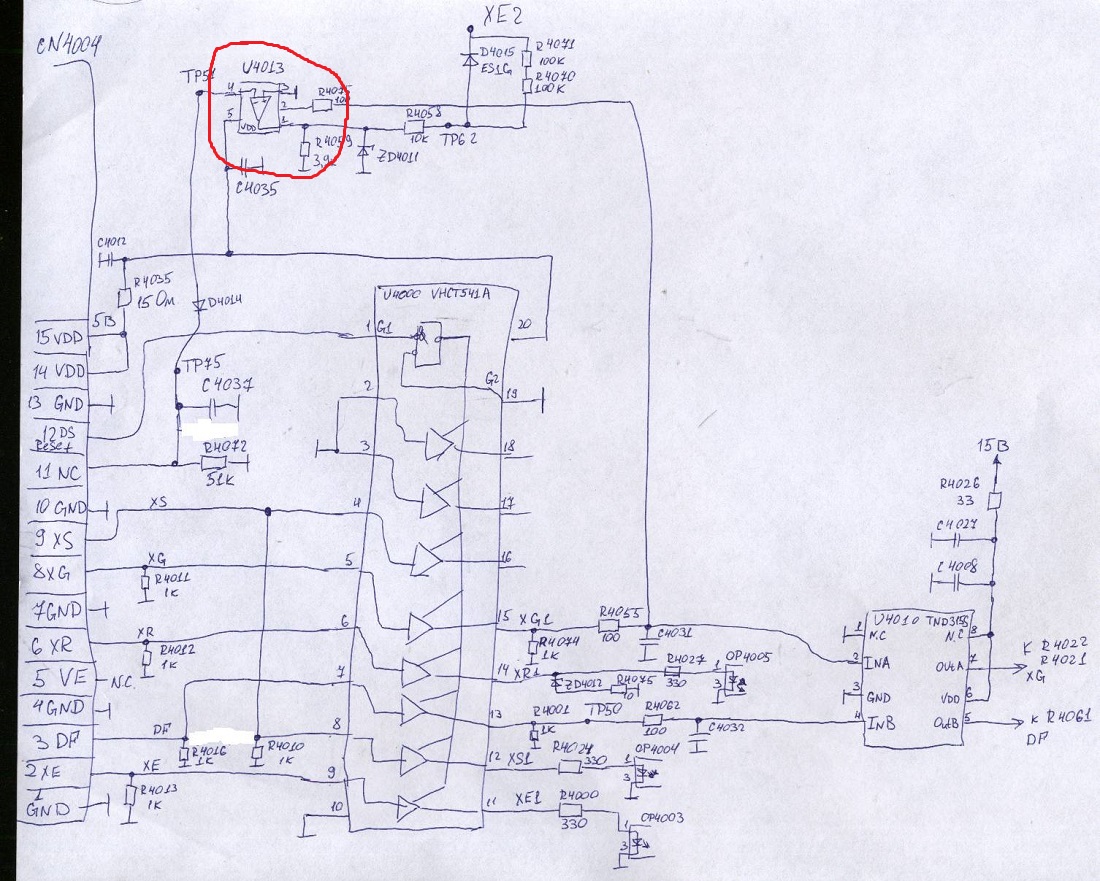 CN4004
XE2
D4015
ES1G
R4071
100K
R4070
100K
TP51
U4013
4
3
2
5
VDD
1
R4058
10K
TP62
ZD4011
C4035
C4012
R4035
15 Ом
5В
D4014
TP75
C4037
R4072
51K
U4000 VHCT541A
1 G1
20
G2
19
2
18
3
17
4
16
5
15 XG1
6
14 XR1
7
13
8
12 XS1
9
11 XE1
10
15 VDD
14 VDD
13 GND
12 DS
Reset
11 NC
10 GND
XS
9 XS
8 XG
XG
R4011
1K
7 GND
6 XR
XR
R4012
1K
5 VE
NC
4 GND
3 DF
DF
R4016
1K
R4010
1K
2 XE
XE
R4013
1K
1
GND
R4055
100
R4074
1K
C4031
ZD4012
R4075
10
R4027
330
1
3
OP4005
R4001
1K
TP50
R4062
100
C4032
R4024
330
1
3
OP4004
R4000
330
1
3
OP4003
15В
R4026
33
C4027
C4008
U4010 TND315S
1
N.C
N.C
8
2
INA
OutA
7
3
GND
VDD
6
4
INB
OutB
5
К R4022
R4021
XG
К R4061
DF